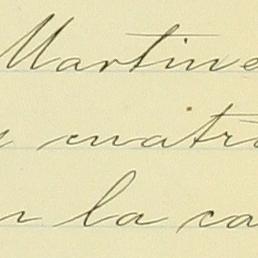 Martine
y cuatro
n la ca